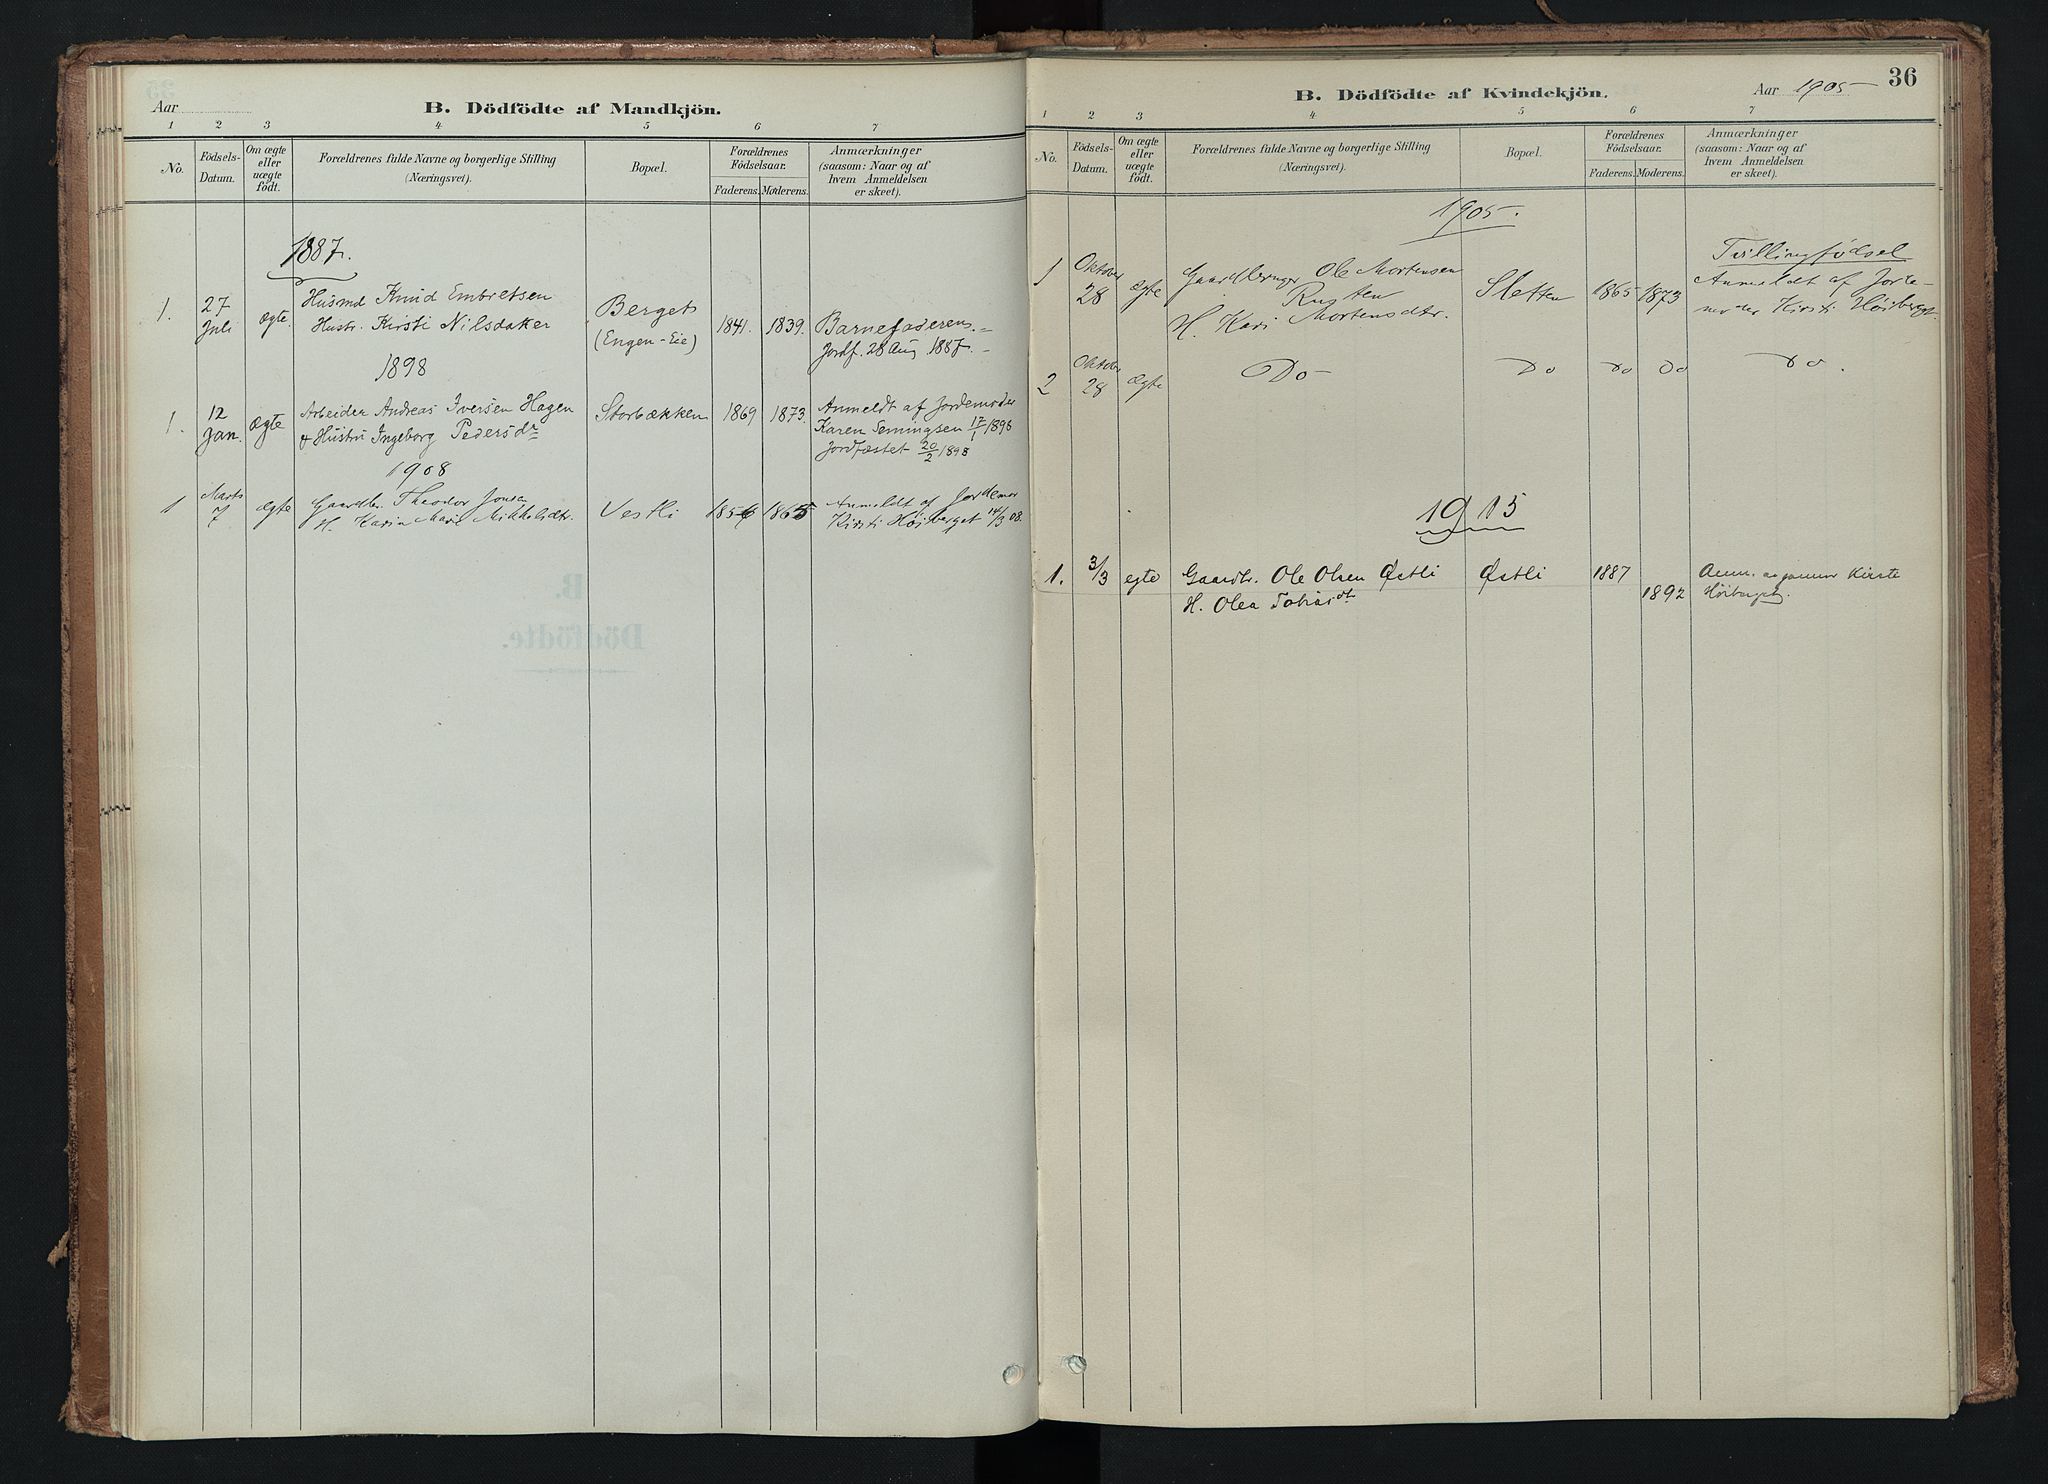 Aar
B. Dödfödte af Mandkjön.
1 2 3 4 5 6 7
No.
Födsels-Datum.
Om ægte eller uægte födt.
Forældrenes fulde Navne og borgerlige Stilling
(Næringsvei).
Bopæl.
Forældrenes Födselsaar.
Faderens. Møderens.
Anmærkninger
(saasom: Naar og af
hvem Anmeldelsen
er skeet).
1887.
1. 27 Juli ægte. Husmd Knud Embretsen
Hustr. Kirsti Nilsdaker
Berget
(Engen-Eie)
1841. 1839.
Barnefaderen.
Jordf. 28 Aug 1887.
1898
1. 12 Jan. ægte Arbeider Andreas Iversen Hagen
& Hustru Ingeborg Pedersdr
Storbækken 1869 1873.
Anmeldt af Jordemoder
Karen Semmingsen 17/1 1898
Jordfæstet 20/2 1898
1908
1 Marts 7 ægte Gaardbr. Theodor Jonsen
H. Karin Marie Mikkelsdtr.
Vestli 1856 1865
Anmeldt af Jordemor
Kirsti Höiberget 14/3 08.
36
B. Dödfödte af Kvindekjön.
Aar 1905
1 2 3 4 5 6 7
No.
Födsels-Datum.
Om ægte eller uægte födt.
Forældrenes fulde Navne og borgerlige Stilling
(Næringsvei).
Bopæl.
Forældrenes Födselsaar.
Faderens. Møderens.
Anmærkninger
(saasom: Naar og af
hvem Anmeldelsen
er skeet).
1905.
1 Oktober 28 ægte Gaardbruger Ole Mortensen
Rusten
H. Kari Mortensdtr.
Sletten 1865 1873
Tvillingfødsel
Anmeldt af Jorde-
moder Kirsti Höiberget.
2 Oktober 28 ægte Do Do Do Do Do.
1915
1. 3/3 egte Gaardbr. Ole Olsen Østli
H. Olea Tobiasdtr
Østli 1887
1892
Kirste
Höiberget.
B.
Dödfödte.